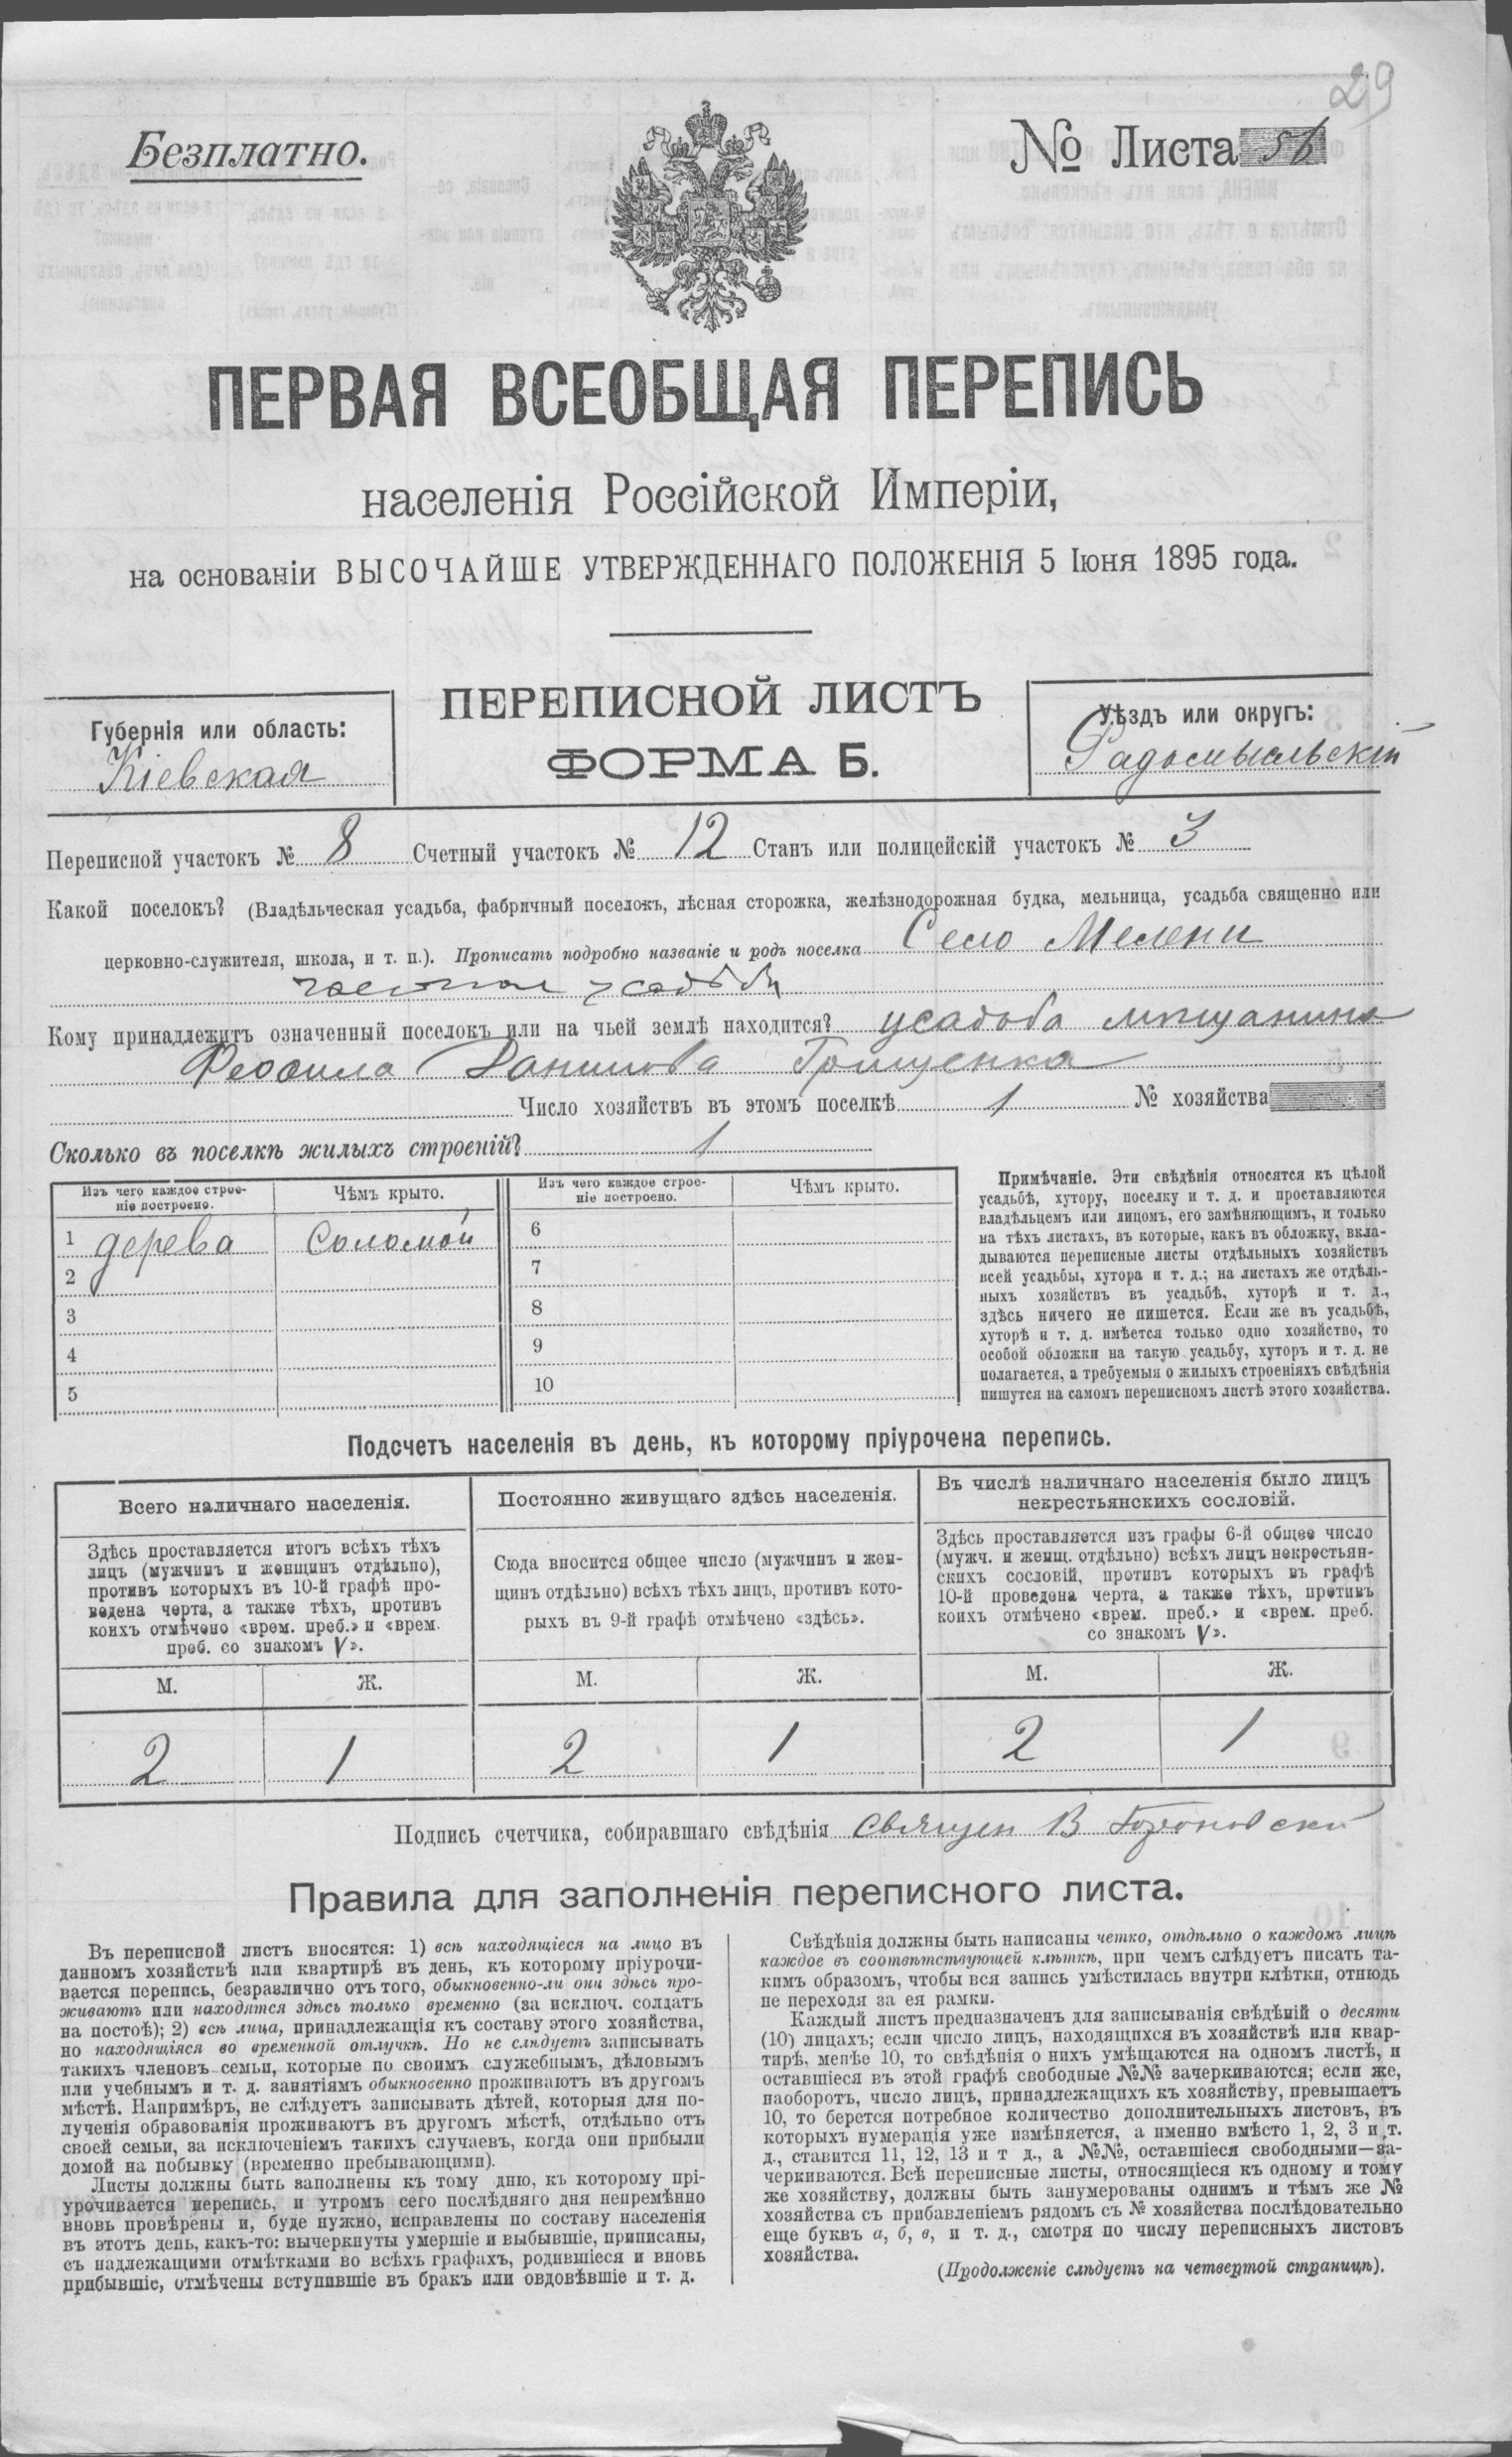 29
Безплатно.
№ Листа 56
ПЕРВАЯ ВСЕОБЩАЯ ПЕРЕПИСЬ
населенія Россійской Имперіи,
на основаніи ВЫСОЧАЙШЕ УТВЕРЖДЕННАГО ПОЛОЖЕНІЯ 5 Іюня 1895 года.
ПЕРЕПИСНОЙ ЛИСТЪ
ФОРМА Б.
Губернія или область:
Кіевская
Уѣздъ или округъ:
Радомысльскій
Переписной участокъ № 8 Счетный участокъ № 12 Станъ или полицейскій участокъ № 3
Какой поселокъ? (Владѣльческая усадьба, фабричный поселокъ, лѣсная сторожка, желѣзнодорожная будка, мельница, усадьба священно или
церковно-служителя, школа, и т. п.). Прописать подробно названіе и родъ поселка Село Мелени
усадьба
Кому принадлежитъ означенный поселокъ или на чьей землѣ находится? усадьба мѣщанина
Данилова Грищенка
Число хозяйствъ въ этомъ поселкѣ 1 № хозяйства
Сколько въ поселкѣ жилыхъ строеній? 1
Изъ чего каждое строе-
ніе построено.
Чѣмъ крыто.
Изъ чего каждое строе-
ніе построено.
Чѣмъ крыто.
1 дерева Соломой 6
2 7
3 8
4 9
5 10
Примѣчаніе. Эти свѣдѣнія относятся къ цѣлой
усадьбѣ, хутору, поселку и т. д. и проставляются
владѣльцемъ или лицомъ, его замѣняющимъ, и только
на тѣхъ листахъ, въ которые, какъ въ обложку, вкла-
дываются переписные листы отдѣльныхъ хозяйствъ
всей усадьбы, хутора и т. д.; на листахъ же отдѣль-
ныхъ хозяйствъ въ усадьбѣ, хуторѣ и т. д.,
здѣсь ничего не пишется. Если же въ усадьбѣ,
хуторѣ и т. д. имѣется только одно хозяйство, то
особой обложки на такую усадьбу, хуторъ и т. д. не
полагается, а требуемыя о жилыхъ строеніяхъ свѣдѣнія
пишутся на самомъ переписномъ листѣ этого хозяйства.
Подсчетъ населенія въ день, къ которому пріурочена перепись.
Всего наличнаго населенія.
Здѣсь проставляется итогъ всѣхъ тѣхъ
лицъ (мужчинъ и женщинъ отдѣльно),
противъ которыхъ въ 10-й графѣ про-
ведена черта, а также тѣхъ, противъ
коихъ отмѣчено «врем. преб.» и «врем.
преб. со знакомъ V».
Постоянно живущаго здѣсь населенія.
Сюда вносится общее число (мужчинъ и жен-
щинъ отдѣльно) всѣхъ тѣхъ лицъ, противъ кото-
рыхъ въ 9-й графѣ отмѣчено «здѣсь».
Въ числѣ наличнаго населенія было лицъ
некрестьянскихъ сословій.
Здѣсь проставляется изъ графы 6-й общее число
(мужч. и женщ. отдѣльно) всѣхъ лицъ некрестьян-
скихъ сословій, противъ которыхъ въ графѣ
10-й проведена черта, а также тѣхъ, противъ
коихъ отмѣчено «врем. преб.» и «врем. преб.
со знакомъ V».
М. Ж. М. Ж. М. Ж.
2 1 2 1 2 1
Подпись счетчика, собиравшаго свѣдѣнія Священ В
Правила для заполненія переписного листа.
Въ переписной листъ вносятся: 1) всѣ находящіеся на лицо въ
данномъ хозяйствѣ или квартирѣ въ день, къ которому пріурочи-
вается перепись, безразлично отъ того, обыкновенно-ли они здѣсь про-
живаютъ или находятся здѣсь только временно (за исключ. солдатъ
на постоѣ); 2) всѣ лица, принадлежащія къ составу этого хозяйства,
но находящіяся во временной отлучкѣ. Но не слѣдуетъ записывать
такихъ членовъ семьи, которые по своимъ служебнымъ, дѣловымъ
или учебнымъ и т. д. занятіямъ обыкновенно проживаютъ въ другомъ
мѣстѣ. Напримѣръ, не слѣдуетъ записывать дѣтей, которыя для по-
лученія образованія проживаютъ въ другомъ мѣстѣ, отдѣльно отъ
своей семьи, за исключеніемъ такихъ случаевъ, когда они прибыли
домой на побывку (временно пребывающими).
Листы должны быть заполнены къ тому дню, къ которому прі-
урочивается перепись, и утромъ сего послѣдняго дня непремѣнно
вновь провѣрены и, буде нужно, исправлены по составу населенія
въ этотъ день, какъ-то: вычеркнуты умершіе и выбывшіе, приписаны,
съ надлежащими отмѣтками во всѣхъ графахъ, родившіеся и вновь
прибывшіе, отмѣчены вступившіе въ бракъ или овдовѣвшіе и т. д.
Свѣдѣнія должны быть написаны четко, отдѣльно о каждомъ лицѣ
каждое въ соотвѣтствующей клѣткѣ, при чемъ слѣдуетъ писать та-
кимъ образомъ, чтобы вся запись умѣстилась внутри клѣтки, отнюдь
не переходя за ея рамки.
Каждый листъ предназначенъ для записыванія свѣдѣній о десяти
(10) лицахъ; если число лицъ, находящихся въ хозяйствѣ или квар-
тирѣ, менѣе 10, то свѣдѣнія о нихъ умѣщаются на одномъ листѣ, и
оставшіеся въ этой графѣ свободные №№ зачеркиваются; если же,
наоборотъ, число лицъ, принадлежащихъ къ хозяйству, превышаетъ
10, то берется потребное количество дополнительныхъ листовъ, въ
которыхъ нумерація уже измѣняется, а именно вмѣсто 1, 2, 3 и т.
д., ставится 11, 12, 13 и т д., а №№, оставшіеся свободными—за-
черкиваются. Всѣ переписные листы, относящіеся къ одному и тому
же хозяйству, должны быть занумерованы однимъ и тѣмъ же №
хозяйства съ прибавленіемъ рядомъ съ № хозяйства послѣдовательно
еще буквъ а, б, в, и т. д., смотря по числу переписныхъ листовъ
хозяйства.
(Продолженіе слѣдуетъ на четвертой страницѣ).